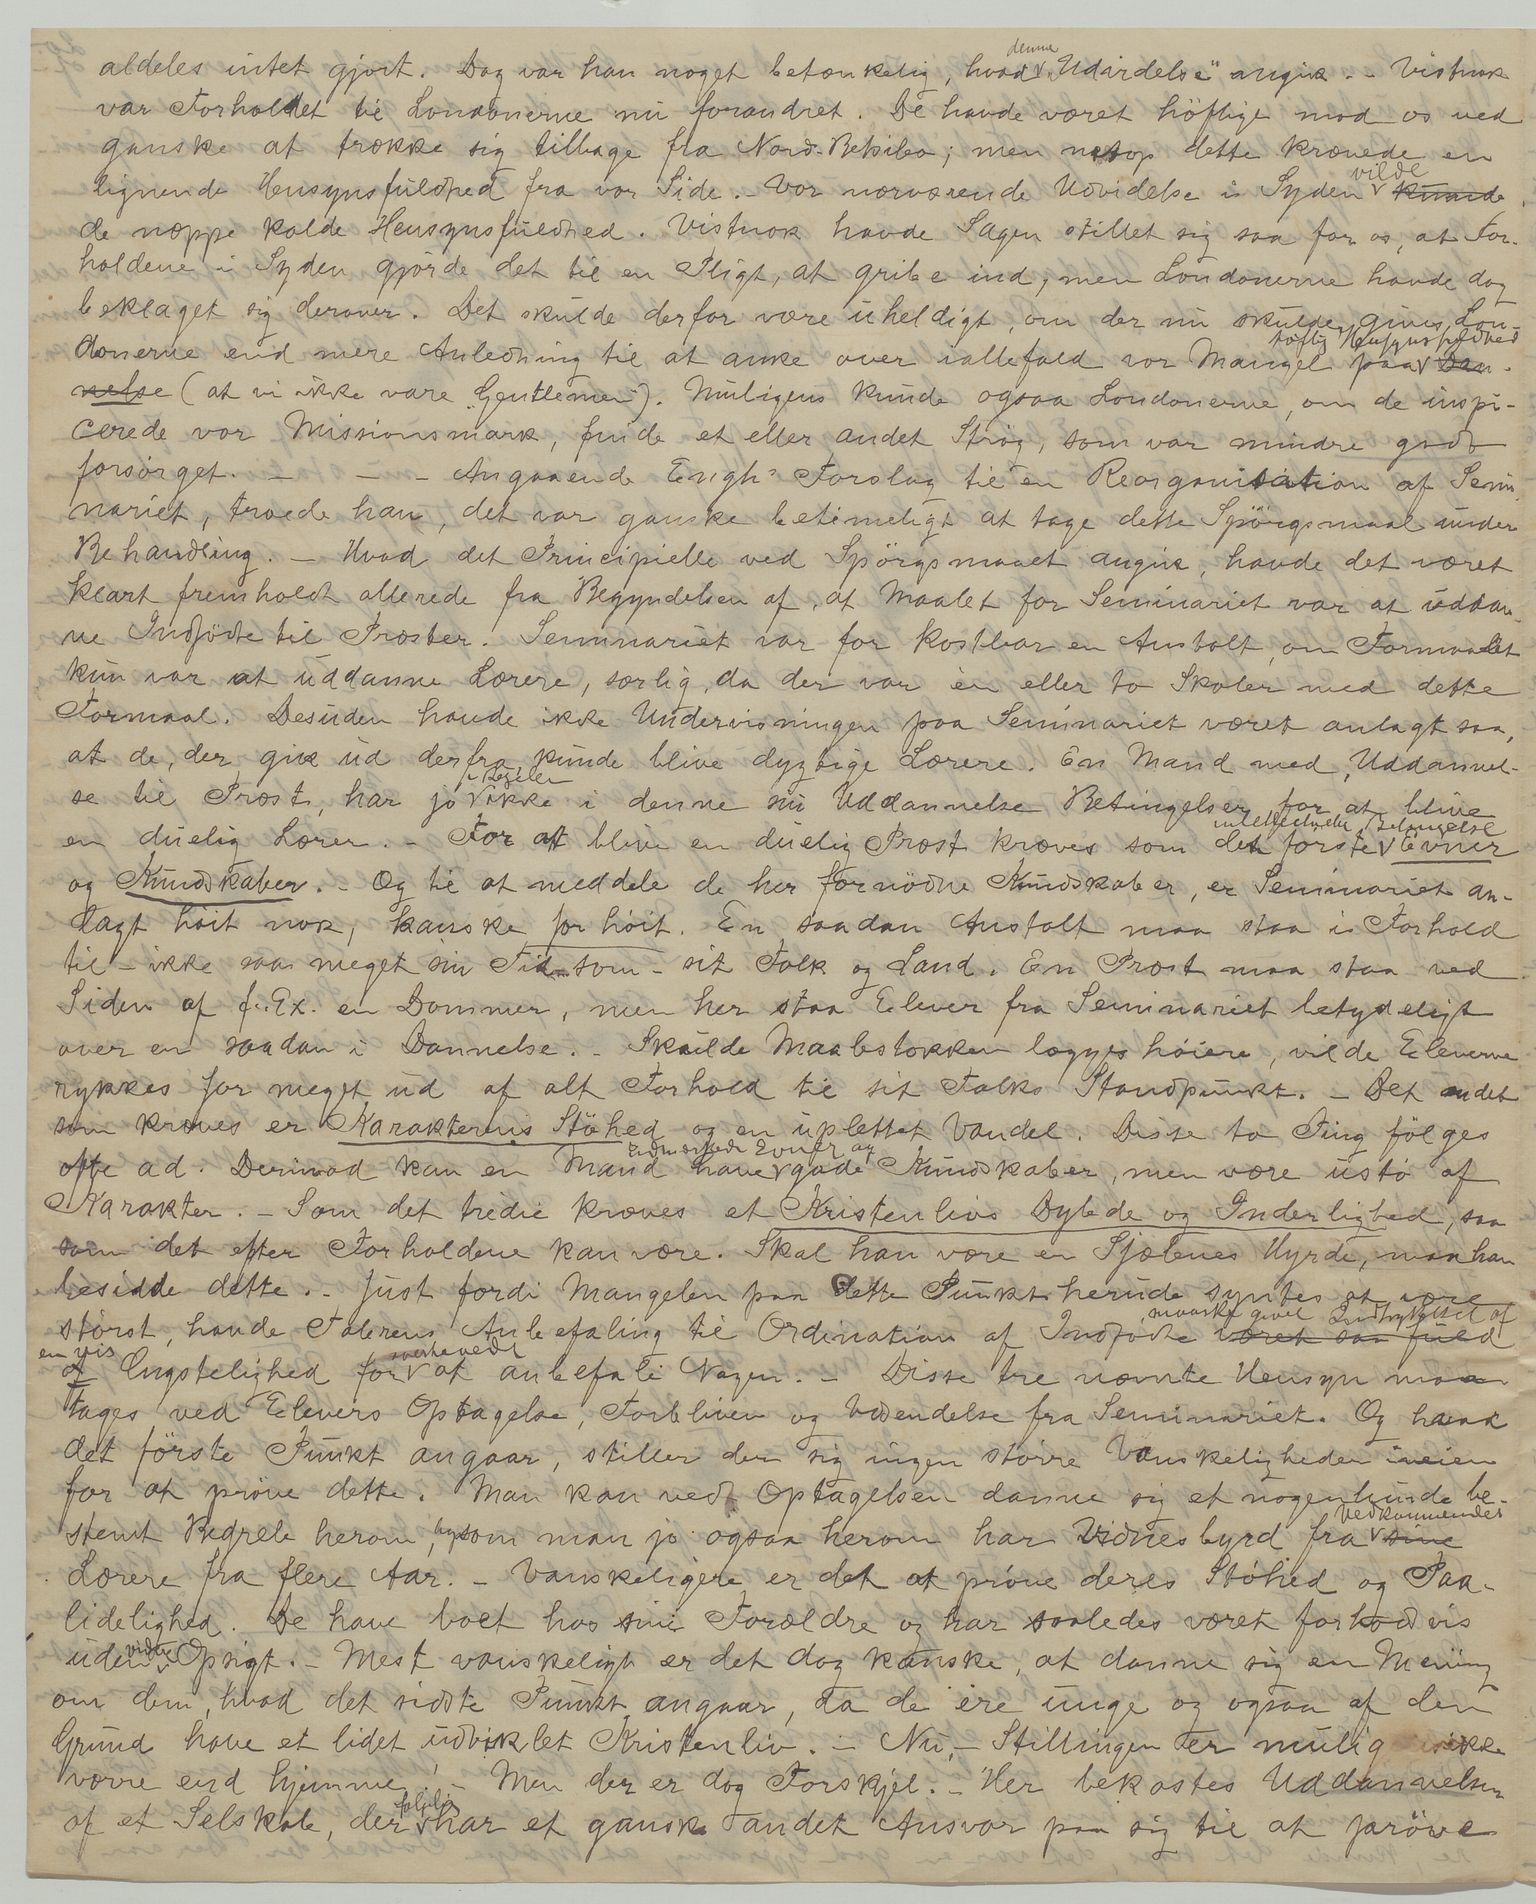 aldeles intet gjort. Dog var han noget betænkelig, hvad denne "Udardelse" angik. - Vistnok
var Forholdet til Londonerne nu forandret. De havde været höflige mod os ved
ganske at trække sig tilbage fra Nord-Betsileo; men netop dette krævede en
lignende Hensynsfuldhed fra vor Side. - Vor nærværende Udvidelse i Syden vilde kunde
de næppe kalde Hensynsfuldhed. Vistnok havde Sagen stillet sig saa for os, at For-
holdene i Syden gjorde det til en Pligt, at gribe ind, men Londonerne havde dog
beklaget sig derover. Det skulde derfor være uheldigt, om der nu skulde gives Lon-
donerne end mere Anledning til at anke over iallefald vor Mangel paa høflig Hensynsfuldhed Dan-
nelse (at vi ikke vare "Gentlemen"). Muligens kunde ogsaa Londonerne, om de inspi-
cerede vor Missionsmark, finde et eller andet Strøg, som var mindre godt
forsörget. - - - Angaaende Enghs Forslag til en Reorganisation af Semi-
nariet, troede han, det var ganske betimeligt at tage dette Spörgsmaal under
Behandling. - Hvad det Principielle ved Spörgsmaalet angik, havde det været
klart fremholdt allerede fra Begyndelsen af, at Maalet for Seminariet var at uddan-
ne Indfödte til Præster. Seminariet var for kostbar en Anstalt, om Formaalet
kun var at uddanne Lærere, særlig, da der var èn eller to Skoler med dette
Formaal. Desuden havde ikke Undervisningen paa Seminariet været anlagt saa,
at de, der gik ud derfra kunde blive dygtige Lærere. En Mand med Uddannel-
se til Præst, har jo i Regelen ikke i denne sin Uddannelse Betingelser for at blive
en duelig Lærer. - For at blive en duelig Præst kræves som det første intellectuelle Evner
og Kundskaber. - Og til at meddele de her fornödne Kundskaber, er Seminariet an-
lagt höit nok, kanske for höit. En saadan Anstalt maa staa i Forhold
til - ikke saa meget sin Tid som - sit Folk og Land. En Præst maa staa ved
Siden af f. Ex. en Dommer, men her staa Elever fra Seminariet betydeligt
over en saadan i Dannelse. - Skulde Maalestokken lægges höiere, vilde Eleverne
rykkes for meget ud af alt Forhold til sit Folks Standpunkt. - Det andet
som kræves er Karakterens Stöhed og en uplettet Vandel. Disse to Ting fölges
ofte ad. Derimod kan en Mand have udmærkede Evner og gode Kundskaber, men være ustö af
Karakter. - Som det tredie kræves et Kristenlivs Dybde og Inderlighed, saa
som det efter Forholdene kan være. Skal han være en Sjælenes Hyrde, maa han
besidde dette. - Just fordi Mangelen paa dette Punkt herude syntes at være
störst, havde Talerens Anbefaling til Ordination af Indfödte maaske givet Indtrykket af været saa fuld
en vis af Engstelighed for overhovedt at anbefale Nogen. - Disse tre nævnte Hensyn maa
tages ved Elevers Optagelse, Forbliven og Udsendelse fra Seminariet. Og hvad
det förste Punkt angaar, stiller der sig ingen större Vanskeligheder iveien
for at pröve dette. Man kan ved Optagelsen danne sig et nogenlunde be-
stemt Begreb herom, ligesom man jo ogsaa herom har Vidnesbyrd fra Vedkommendes sine
Lærere fra flere Aar. - Vanskeligere er det at pröve deres Stöhed og Paa-
lidelighed. De have boet hos sine Forældre og har saaledes været forholdvis
uden videre Opsigt. - Mest vanskeligt er det dog kanske, at danne sig en Mening
om dem, hvad det sidste Punkt angaar, da de ere unge og ogsaa af den
Grund have et lidet udviklet Kristenliv. - Nu, - Stillingen er mulig ikke
værre end hjemme! - Men der er dog Forskjel. - Her bekostes Uddannelsen
af et Selskab, der følgelig har et ganske andet Ansvar paa sig til at pröve